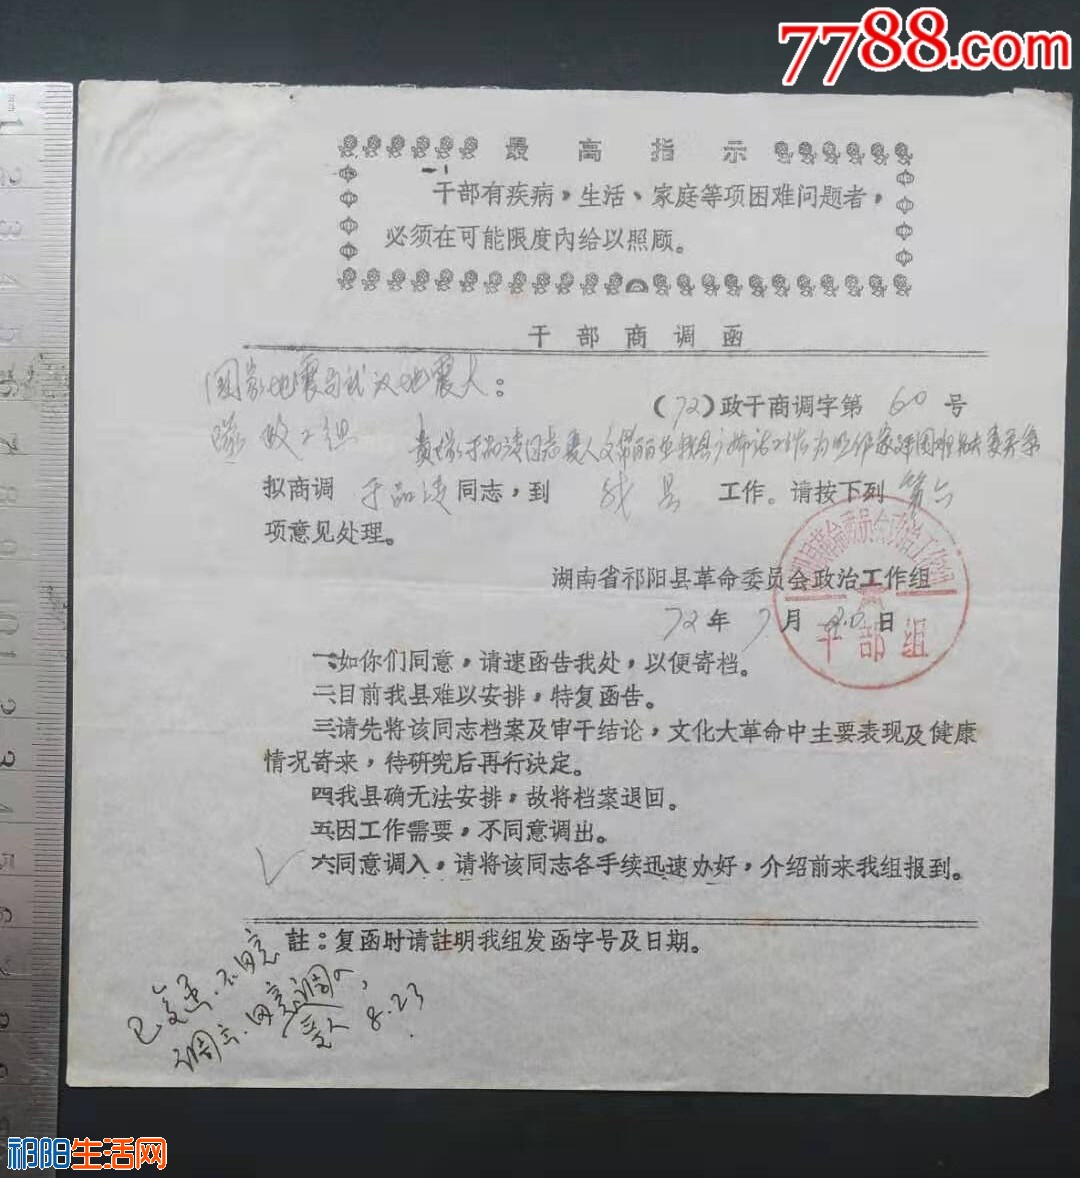 7788.com
最高指示
干部有疾病，生活、家庭等项困难问题者，
必须在可能限度内给以照顾。
干部商调函
国家地震局武汉地震大：
（72）政干商调字第 60 号
队政工组
贵队于品凌同志爱人
拟商调 于品凌 同志，到 我县 工作。请按下列 第六
项意见处理。
湖南省祁阳县革命委员会政治工作组
72年7月20日
干部组
一如你们同意，请速函告我处，以便寄档。
二目前我县难以安排，特复函告。
三请先将该同志档案及审干结论，文化大革命中主要表现及健康
情况寄来，待研究后再行决定。
四我县确无法安排，故将档案退回。
五因工作需要，不同意调出。
六同意调入，请将该同志各手续迅速办好，介绍前来我组报到。
註：复函时请註明我组发函字号及日期。
已复函.不同意
调出.同意调入
爱人 8.23
祁阳生活网